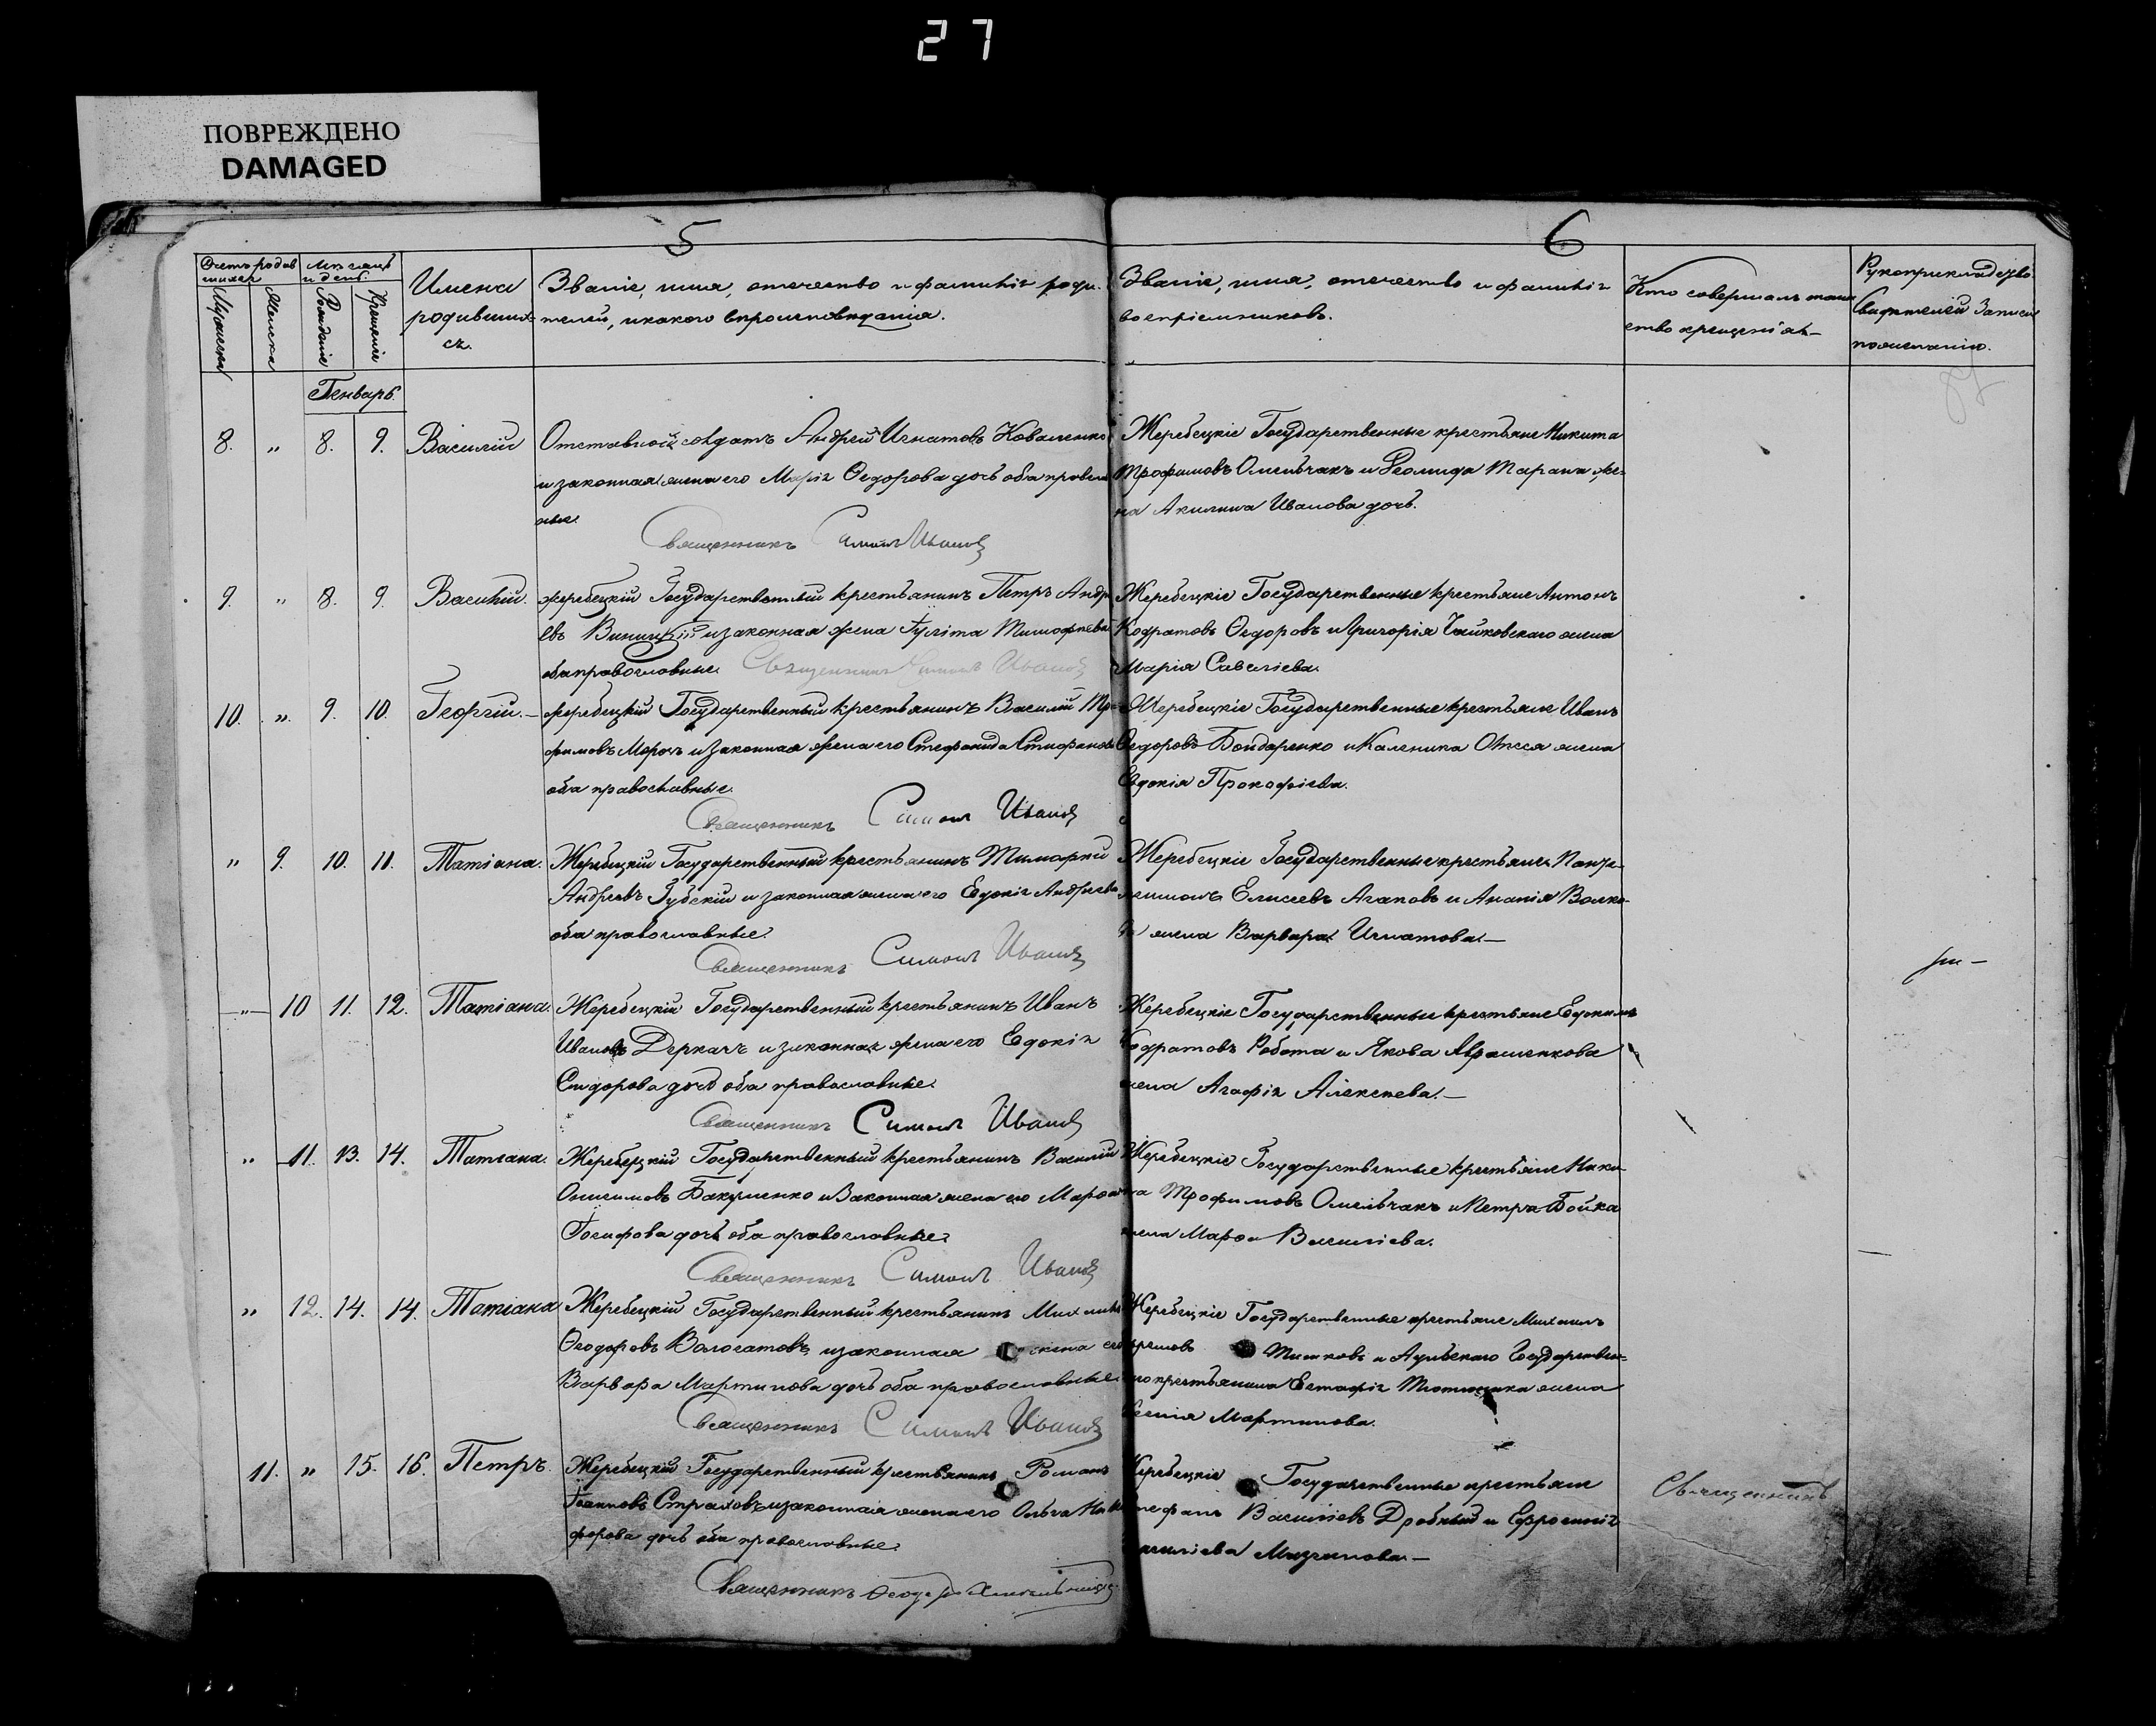 27
ПОВРЕЖДЕНО
DAMAGED
5
6
Счетъ родив
шихся
Мужеска
Женска
Мѣсяцъ
и день.
Рожденіе
Крещеніе
Имена
родивших
ся.
Званіе, имя, отечество и фамилія роди-
телей, и какого вѣроисповѣданія.
Званіе, имя, отечество и фамилія
воспріемниковъ.
Кто совершалъ таин
ство крещенія
Рукоприкладство
Свидѣтелей записи
по желанію.
Генварь.
8. „ 8. 9. Василій
Отставной солдатъ Андрей Игнатовъ Коваленко
и законная жена его Марія Ѳедорова дочь оба правосла
ные.
Священникъ Симонъ Ивановъ
Жеребецкіе Государственные крестьяне Никита
Трофимовъ Омельчакъ и Тарана же-
на Акилина Иванова дочь.
9. „ 8. 9. Василій.
жеребецкій Государственный крестьянинъ Петръ Андр
евъ и законная жена Гулита Тимофеева
оба православные. Священникъ Симонъ Ивановъ
Жеребецкіе Государственные крестьяне Антонъ
Кодратовъ Ѳедоровъ и Григорія Чайковскаго жена
Марія Савеліева.
10. „ 9. 10. Георгій.
жеребецкій Государственный крестьянинъ Василій Тро
фимовъ Морозъ и законная жена его Стефанида Стефанова
оба православные.
Священникъ Симонъ Ивановъ
Жеребецкіе Государственные крестьяне Иванъ
Ѳедоровъ Бондаренко и Каленика жена
Евдокія Прокофіева.
„ 9. 10. 11. Татіана.
Жеребецкій Государственный крестьянинъ Тимофей
Андреевъ Губскій и законная жена его Евдокія Андреева
оба православные.
Священникъ Симонъ Ивановъ
Жеребецкіе Государственные крестьяне Панте
леимонъ Елисеевъ Агаповъ и Ананія Волко-
ва жена Варвара Игнатова.—
—„— 10 11. 12. Татіана.
Жеребецкій Государственный крестьянинъ Иванъ
Ивановъ Деркачъ и законная жена его Евдокія
Сидорова дочь оба православные.
Священникъ Симонъ Ивановъ
Жеребецкіе Государственные крестьяне Евдокимъ
Кодратовъ Робота и Якова Авраменкова
жена Агафія Алексеева.—
„ 11. 13. 14. Татіана.
Жеребецкій Государственный крестьянинъ Василій
Онисимовъ Бакуменко и законная жена его Марфа
Іосифова дочь оба православные.
Священникъ Симонъ Ивановъ
Жеребецкіе Государственные крестьяне Ники
та Трофимовъ Омельчакъ и Петра Бойка
жена Марфа Василіева.
„ 12. 14. 14. Татіана
Жеребецкій Государственный крестьянинъ Михаилъ
Ѳеодоровъ Вологатовъ и законная жена его
Варвара Мартинова дочь оба православные.
Священникъ Симонъ Ивановъ
Жеребецкіе Государственные крестьяне Михаилъ
Титковъ и Государствен-
наго крестьянина Евтафія жена
Ксенія Мартинова.
11. „ 15. 16. Петръ.
Жеребецкій Государственный крестьянинъ Романъ
Іоанновъ Страховъ и законная жена его Ольга Ни
форова дочь оба православные.
Священникъ Ѳеодоръ
Жеребецкіе Государственные крестьяне
Стефанъ Василіевъ Дробный и Ефросинія
Василіева
Священникъ